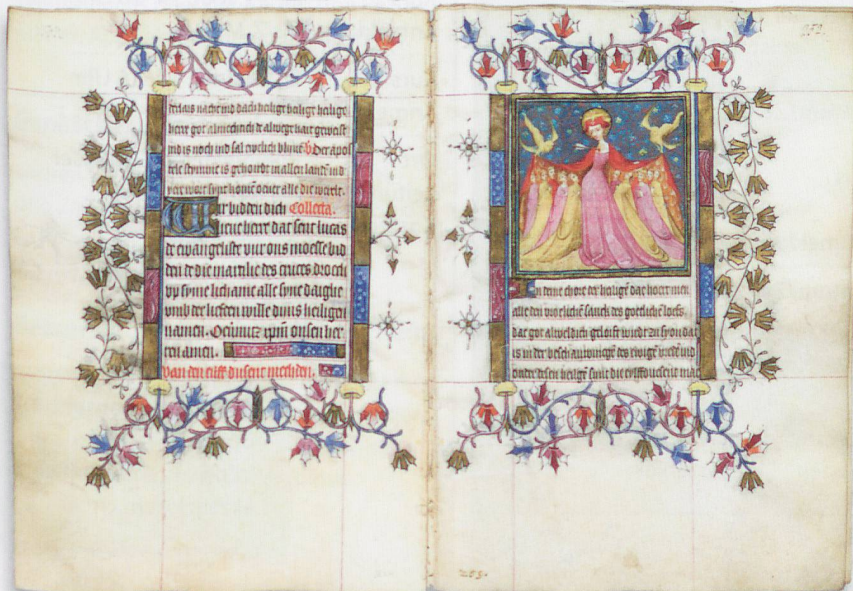 nacht ind dach heilige heilige heilige
here got almechtich de alwege hait geweist
ind is noch ind sal ewelich bliuen Der apos
tele stymme is gehoirt in allen landen ind
yere wort synt komen ouer alle die werelt.
Wir bidden dich Collecta.
here dat sent lucas
de ewangeliste vur ons moesse bid
den de die martilie des cruces droech
vp syme lichame alle syne daighe
vmb der liefden wille dyns heiligen
namen. Ouermitz xpm onsen her
ren amen.
van den eilff dusent megheden.
252.
In deme chore der heiligen dae hoert men
alle den vroelichen sanck des goetlichen loefs
dat got alweldich geloift wirdt zu syon dat
is in der beschauwingen des ewigen vreden ind
onder desen heiligen sint die eylffdusent mae
255.